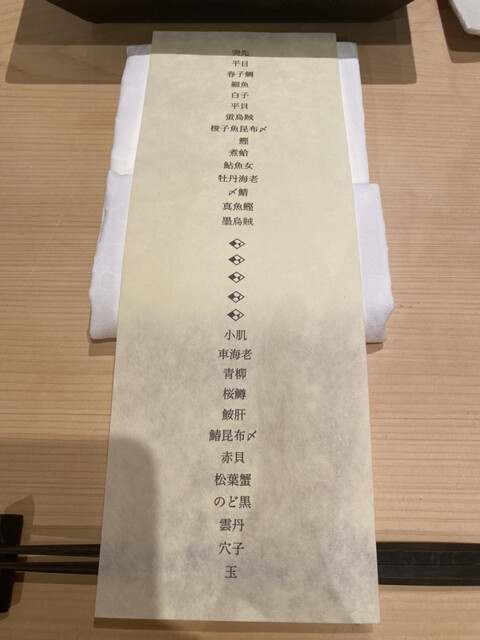 突先
平目
春子鯛
細魚
白子
平貝
蛍烏賊
梭子魚昆布〆
鰹
煮蛤
鮎魚女
牡丹海老
〆鯖
真魚鰹
墨烏賊
小肌
車海老
青柳
桜鱒
鮟肝
鰆昆布〆
赤貝
松葉蟹
のど黒
雲丹
穴子
玉